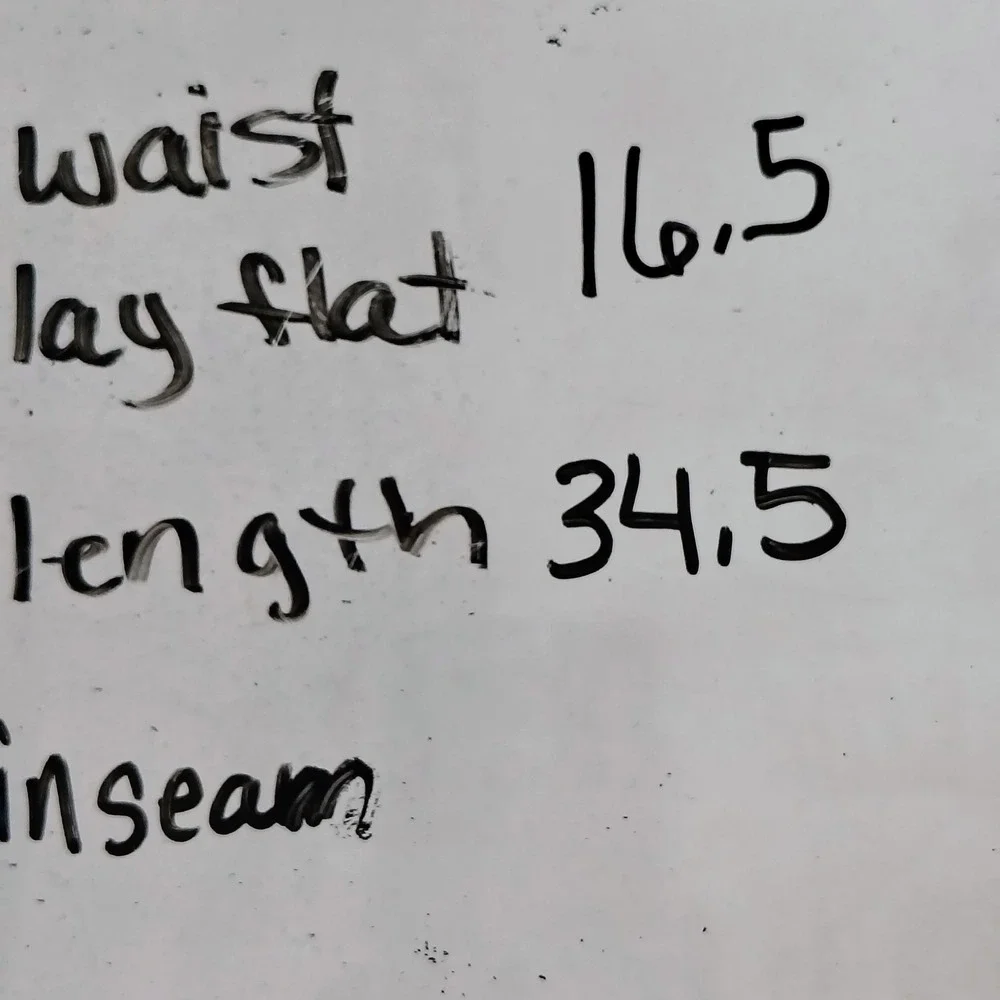 waist
lay flat 16.5
length 34.5
inseam